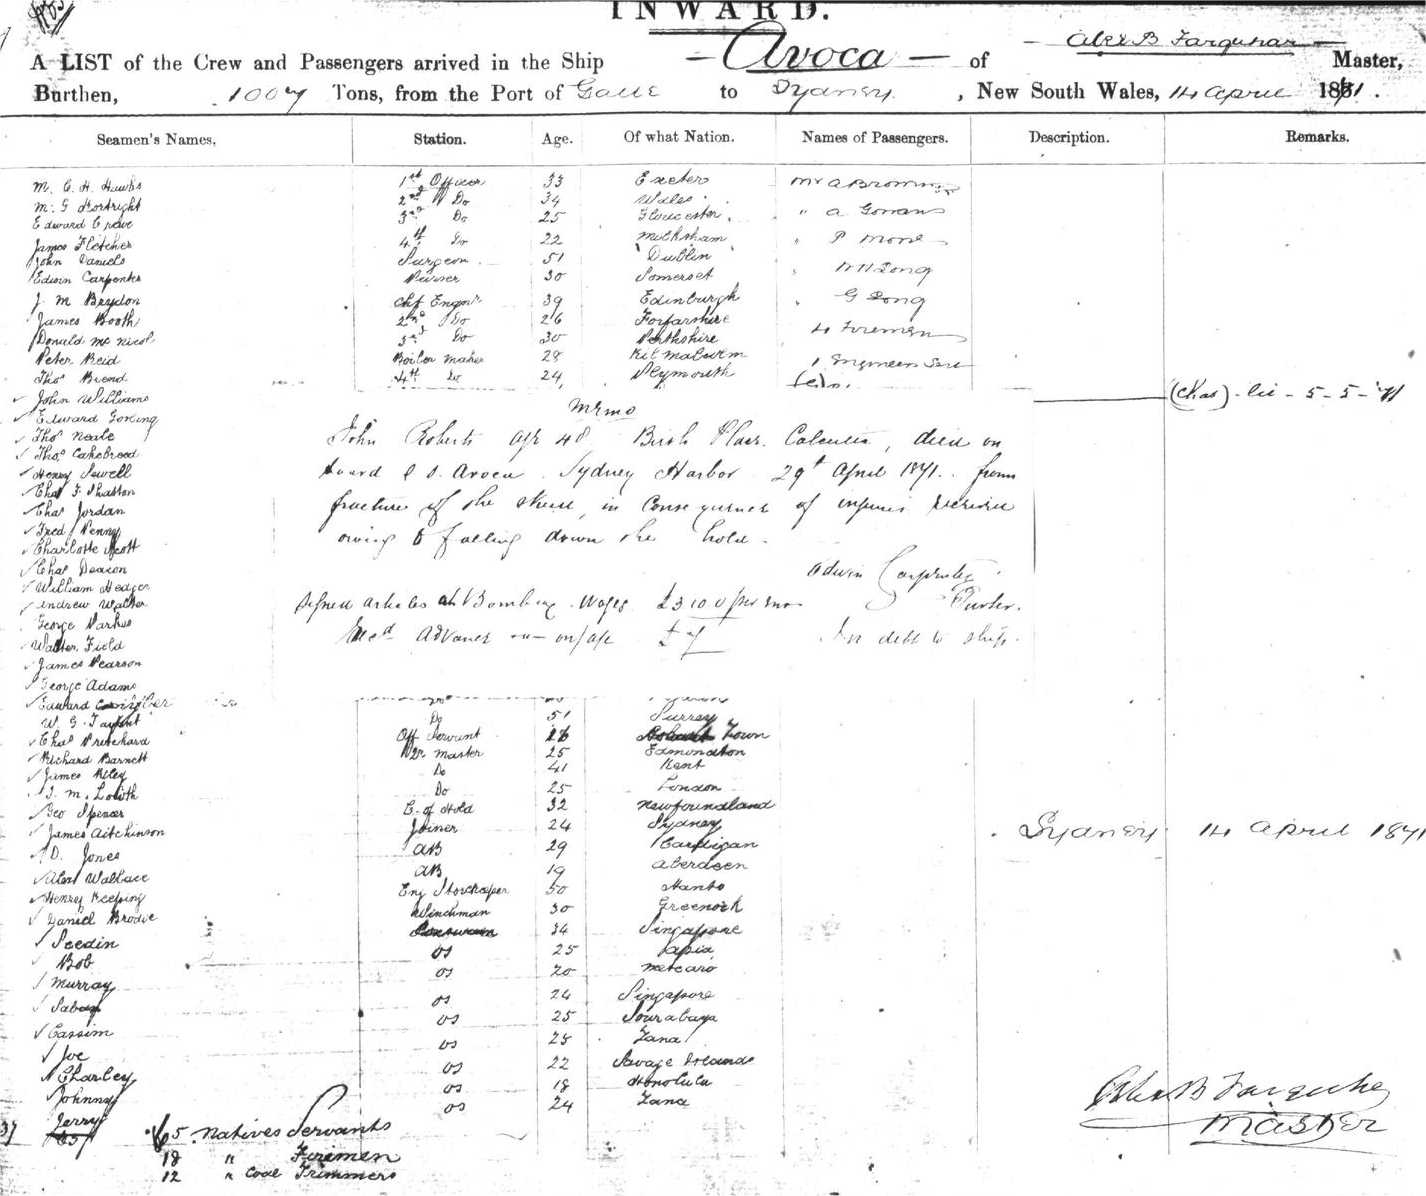 INWARD.
A LIST of the Crew and Passengers arrived in the Ship - Avoca - of Alex B Farquhar Master,
Burthen, 1007 Tons, from the Port of Galle to Sydney, New South Wales, 14 April 1871.
Seamen's Names, Station. Age. Of what Nation. Names of Passengers. Description. Remarks.
M. C. H. Hawks 1st Officer 33 Exeter Mr A Browning
M. G Fortright 2nd Do 34 Wales " A Gowans
Edward Crewe 3rd Do 25 Gloucester. " P More
James Fletcher 4th Do 22 Melksham " W H Long
John Daniels Surgeon 51 Dublin " G Long
Edwin Carpenter Purser 30 Somerset
J. M Brydon Chf Engnr 39 Edinburgh
James Booth 2nd Do 26 Forfarshire 4 Firemen
Donald Mc Nicol 3rd Do 30 Perthshire
Peter Reid Boiler Maker 28 Kilmalcurm 1 Engineers Serv
Thos Brend 4th Do 24 Weymouth
John Williams (Chas) - lic - 5 - 5 - '71
Edward Gosling
Thos Neale
Thos Cakebread
Henry Sewell
Chas F. Shatton
Chas Jordan
Fred Penny
Charlotte Scott
Chas Deacon
William Hedger
Andrew Walker
George Parkus
Walter Field
James Pearson
George Adams
Memo
John Roberts age 48 Birth Place. Calcutta, died on
board S. S. Avoca. Sydney Harbor 29th April 1871. from
fracture of the skull, in consequence of injuries received
owing to falling down the hold.
Edwin Carpenter
Purser.
Signed articles at Bombay. Wages £3 10 0 per mo.
Recd Advance on In debt to ship.
Edward
W. G. Do 51 Surrey
Chas Pritchard Off Servant Town
Richard Barnett Qr Master 25 Edmonton
James Riley Do 41 Kent
J. M. Do 25 London
Geo Spencer C. of Hold 32 Newfoundland
James Aitchinson Joiner 24 Sydney Sydney 14 April 1871
D. Jones AB 29 Cardigan
Alex Wallace AB 19 Aberdeen
Henry Keeping Eng Storekeeper 50 Hants
Daniel Brodie Winchman 30 Greenock
Seedin 34 Singapore
Bob OS 25 Papia
Murray OS 20 Metcaro
Saban OS 24 Singapore
Cassim OS 25 Sourabaya
Joe OS 25 Tana
Charley OS 22 Savage Islands
Johnny OS 18 Honolulu
Jerry OS 24 Tana
65 Natives Servants
18 " Firemen
12 " Coal Trimmers
Alex B Farquhar
Master